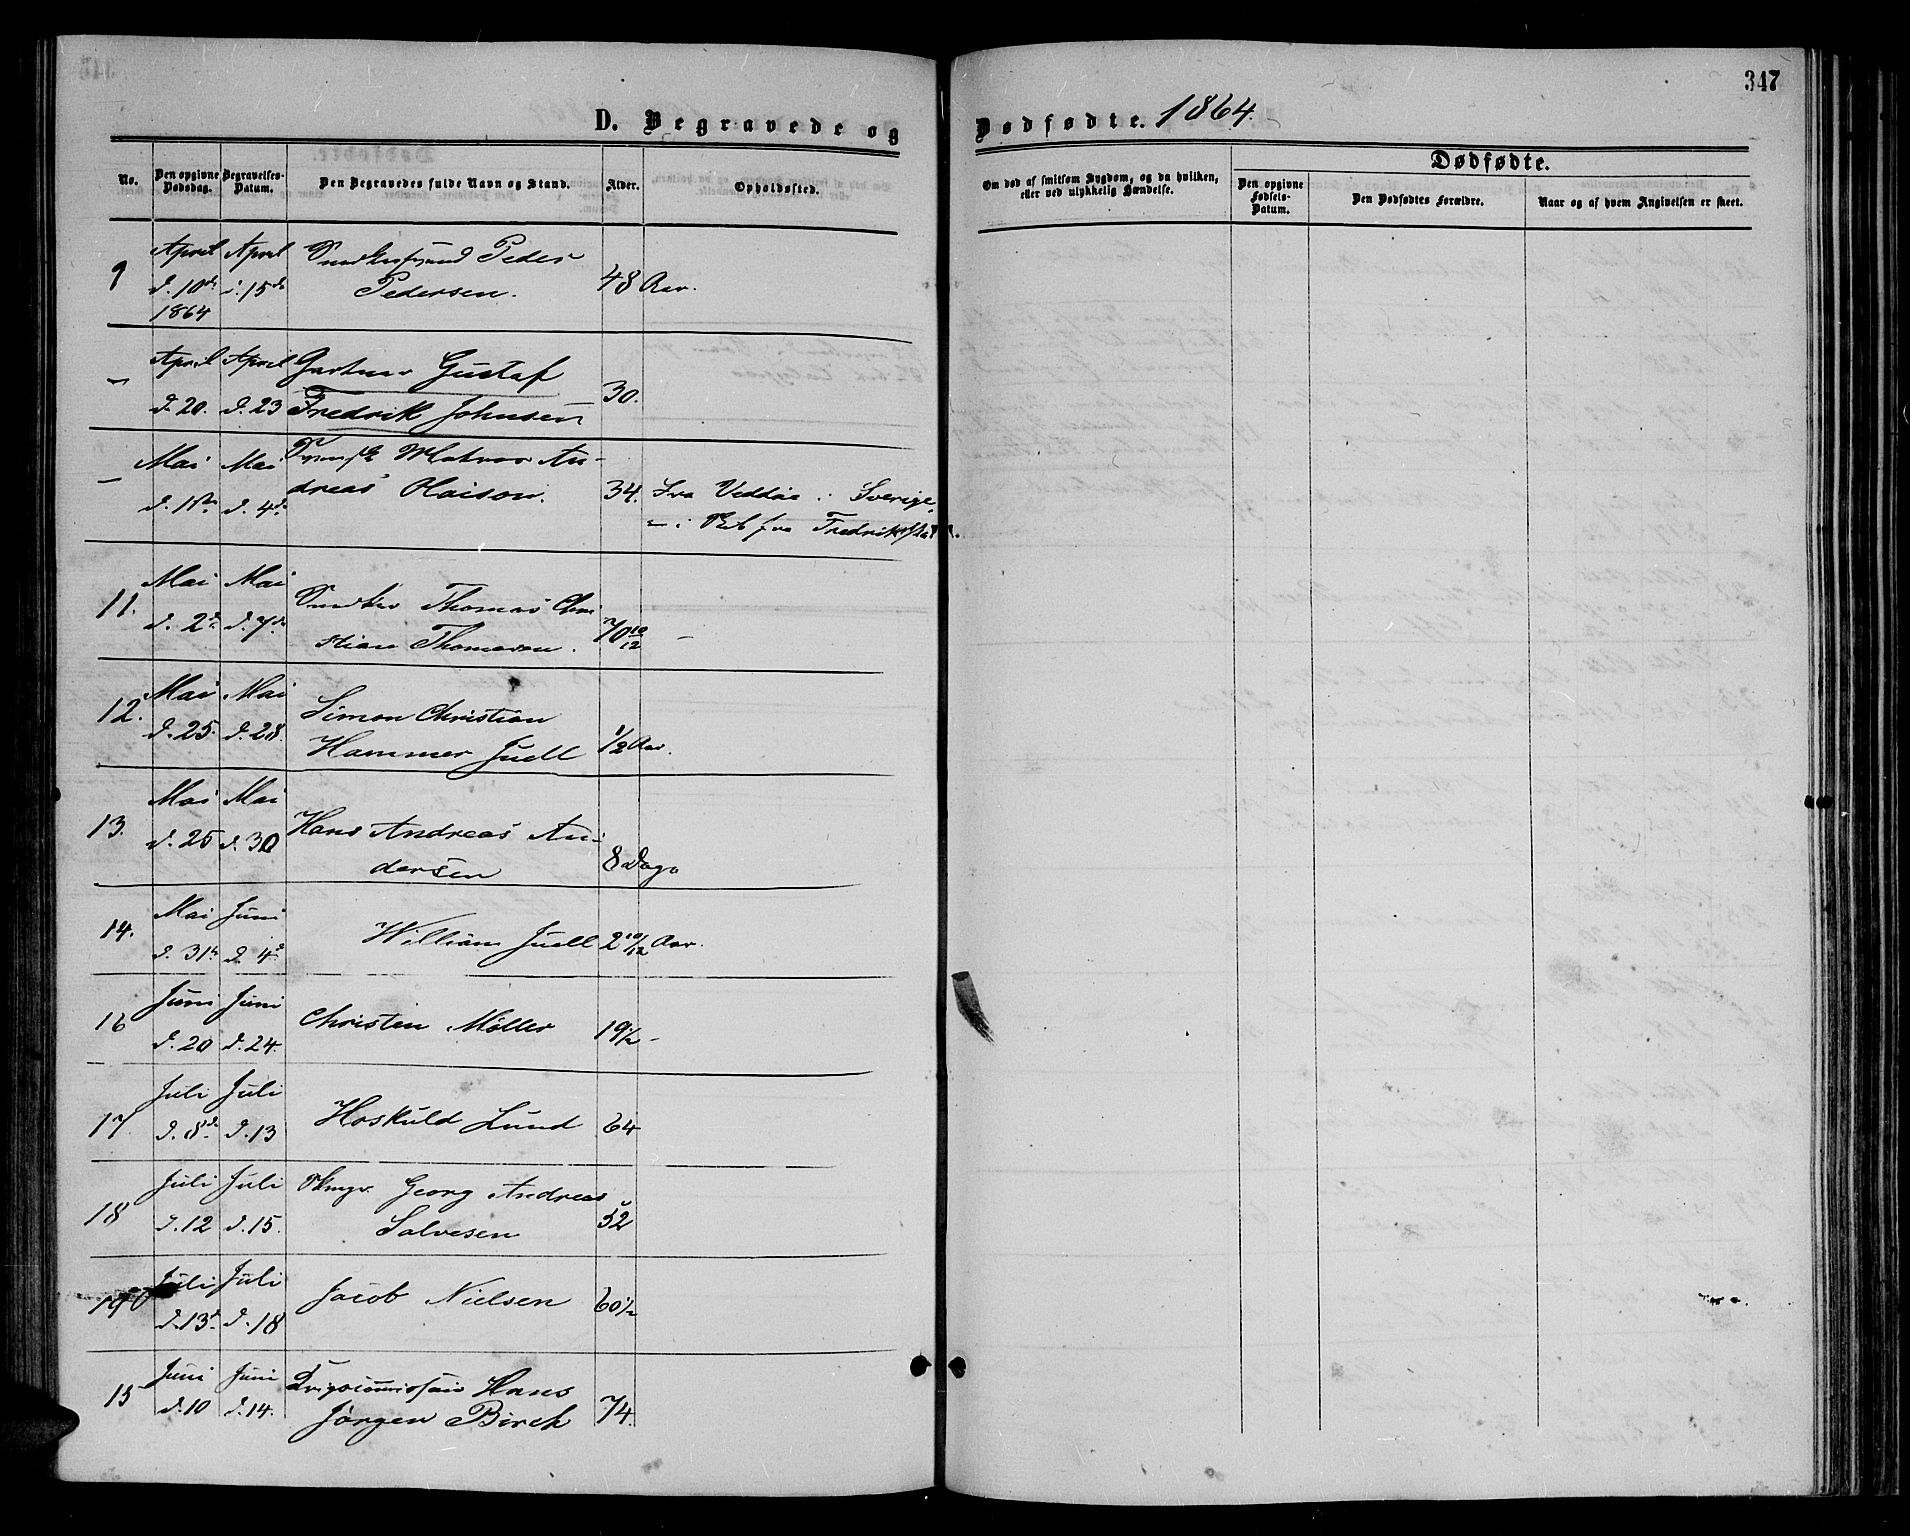 347
D. Begravede og Dødfødte. 1864.
Dødfødte.
No.
Den opgivne Dødsdag.
Begravelses-Datum.
Den Begravedes fulde Navn og Stand.
Alder.
Opholdssted.
Om død af smitsom Sygdom, og da hvilken,
eller ved ulykkelig Hændelse.
Den opgivne Fødsels-Datum.
Den Dødfødtes Forældre.
Naar og af hvem Angivelsen er skeet.
April April Peder
9 d. 10de d. 15de Pedersen. 48 Aar.
1864
April April Gartner Gustaf
– d. 20. d. 23 Fredrik Johnsen 30.
Mai Mai Matros An-
– d. 1ste d. 4de dreas Olaison. 34. Fra Veddöe i Sverige,
i fra Fredrikstad.
Mai Mai Snedker Thomas Chri
11. d. 2de d. 7de stian Thomesen. 70 10/12 –
Mai Mai Simon Christian
12. d. 25. d. 28. Hammer Juell 1/2 Aar.
Mai Mai
13. d. 25 d. 30 Hans Andreas An-
dersen 8 Dage
Mai Juni
14. d. 31te d. 4de William Juell 2 10/12 Aar.
Juni Juni
16 d. 20 d. 24. Christen Möller 19 1/2 –
Juli Juli
17 d. 8de d. 13 Hoskuld Lund 64
Juli Juli Georg Andreas
18 d. 12 d. 15. Salvesen 52
Juli Juli
19 d. 13de d. 18 Jacob Nielsen 60 1/2
Juni Juni Krigscommissair Hans
15 d. 10 d. 14. Jörgen Birch 74.